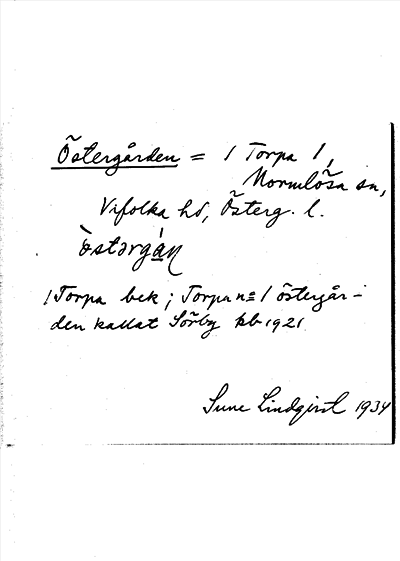 Östergården = 1 Torpa 1,
Normlösa sn,
Vifolka hd, Österg. l.
östərgán
1 Torpa bek; Torpa nº 1 östergår-
den kallat Sörby kb 1921
Sune Lindqvist 1934